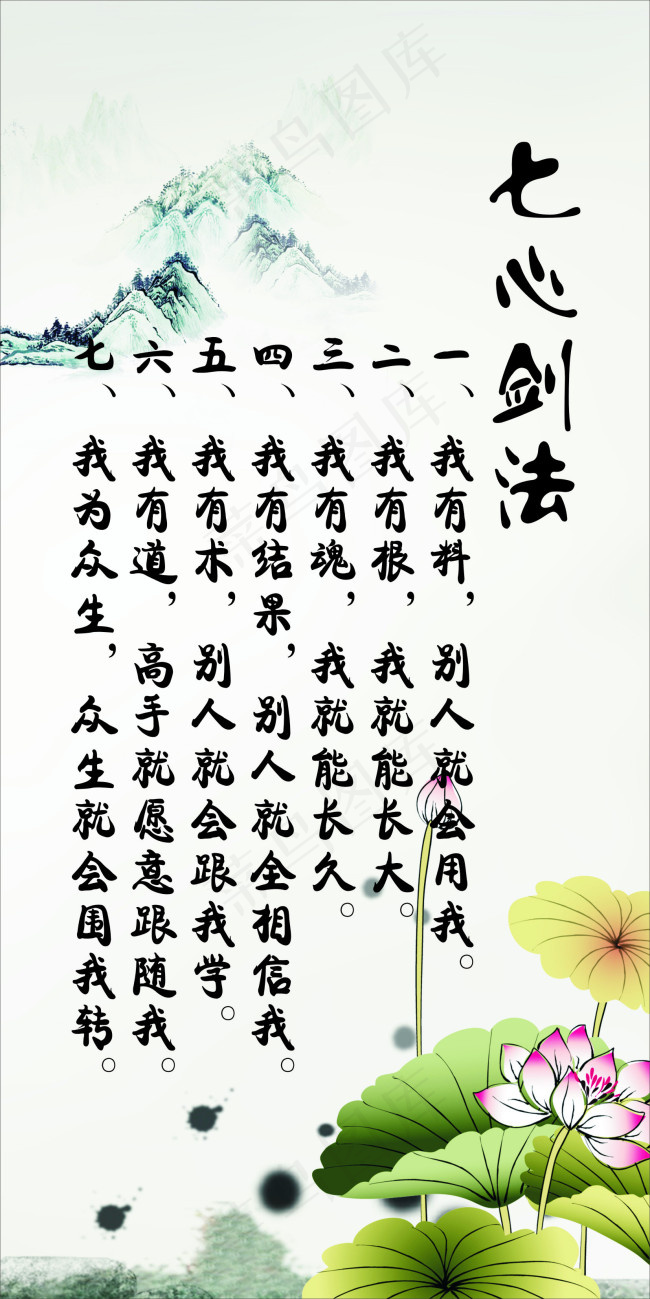 七心剑法
一、我有料，别人就会用我。
二、我有根，我就能长大。
三、我有魂，我就能长久。
四、我有结果，别人就全相信我。
五、我有术，别人就会跟我学。
六、我有道，高手就愿意跟随我。
七、我为众生，众生就会围我转。
菜鸟图库
菜鸟图库
菜鸟图库
菜鸟图库